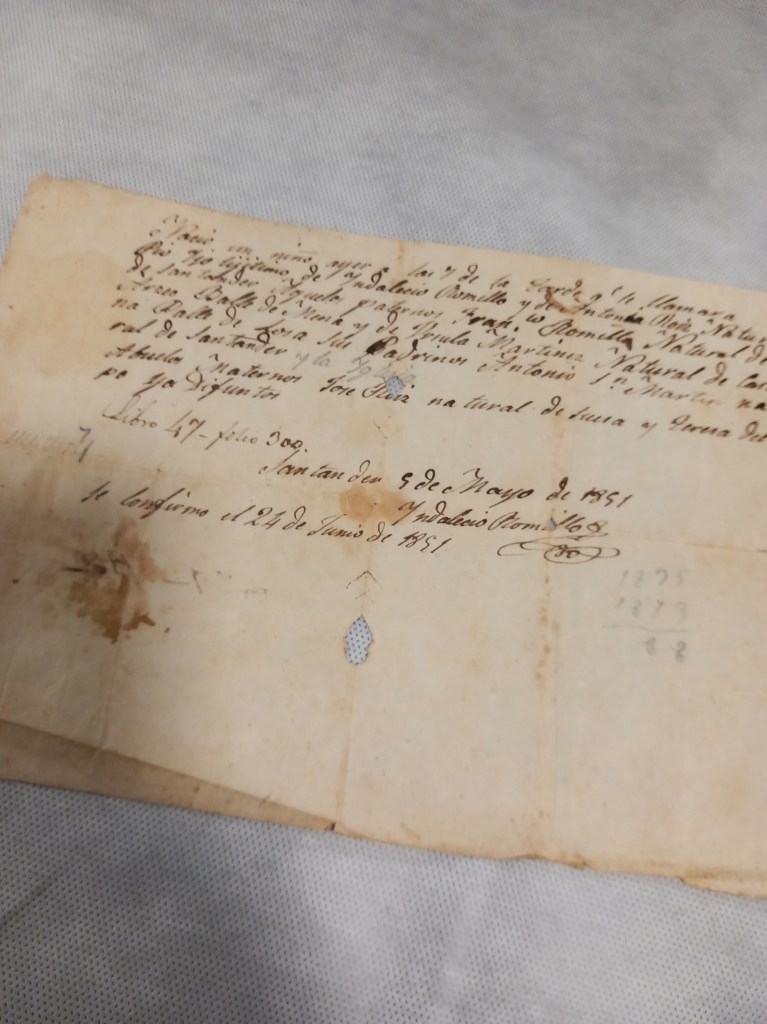 Nacio un niño ayer a las 7 de la tarde q.e se llamara
Pio Hijo lijitimo de Yndalecio Romillo y de Antonia Natur
de Santander Aguelos paternos Fran.co Romillo Natural de
Balle de Mena y de Ursula Martinez Natural de
na Balle de Losa Sus Padrinos Antonio S.n Martin na
ral de Santander y la
Abuelos Maternos Jose Ruiz natural de y Teresa del
po ya difuntos
Libro 47 - folio 300.
Santander 5 de Mayo de 1851
Yndalecio Romillo
se confirmo el 24 de Junio de 1851
1873
88